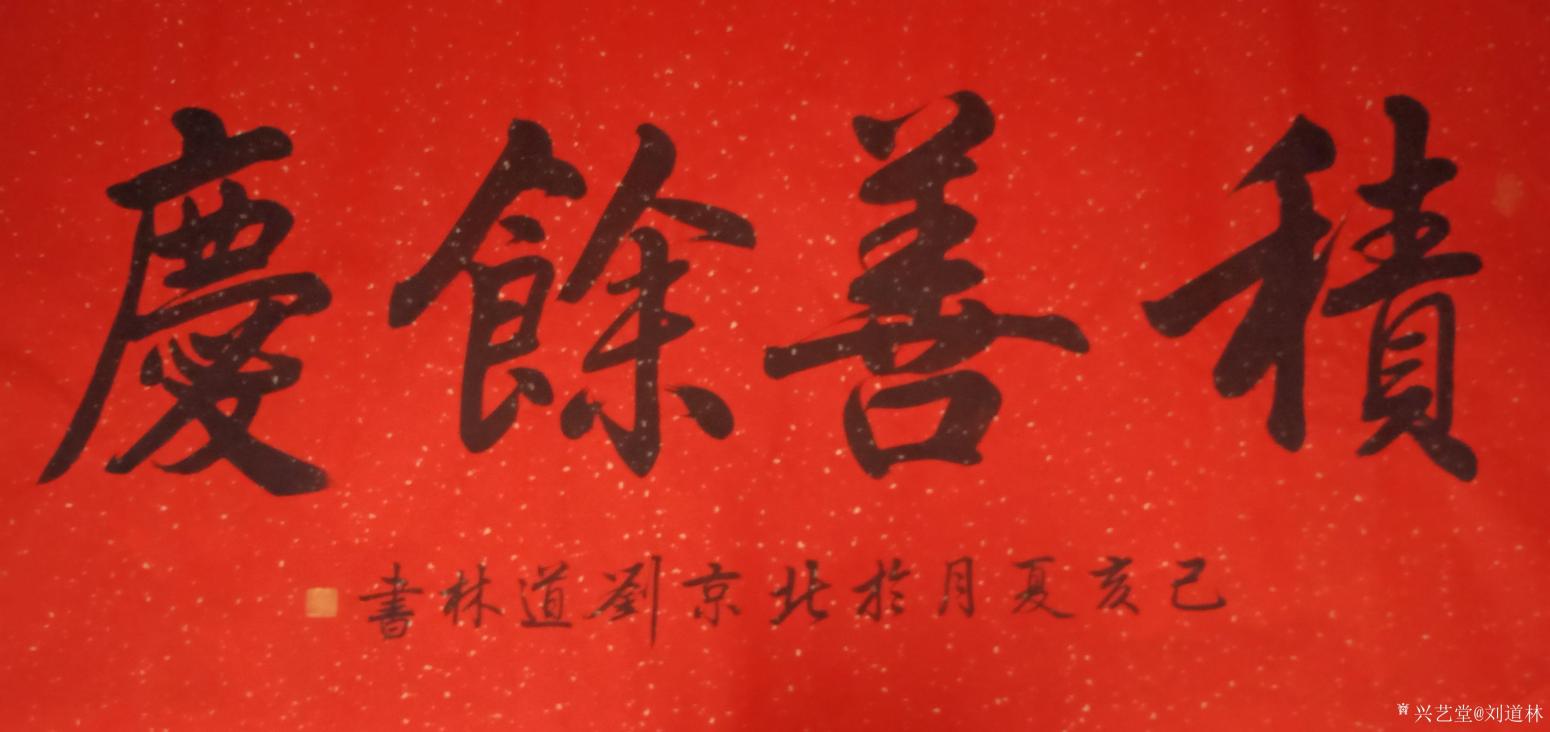 積善餘慶
己亥夏月於北京劉道林書
兴艺堂@刘道林